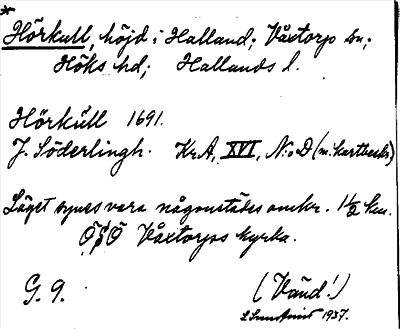 *
Hörkull, höjd i Halland; Våxtorps sn;
Höks hd; Hallands l.
Hörkúll 1691.
J. Söderlingh. Kr.A, XVI, N:o D (m. kartbeskr)
Läget synes vara någonstädes omkr. 1½ km.
ÖSÖ Våxtorps kyrka.
G. 9. (Vänd!)
1937.